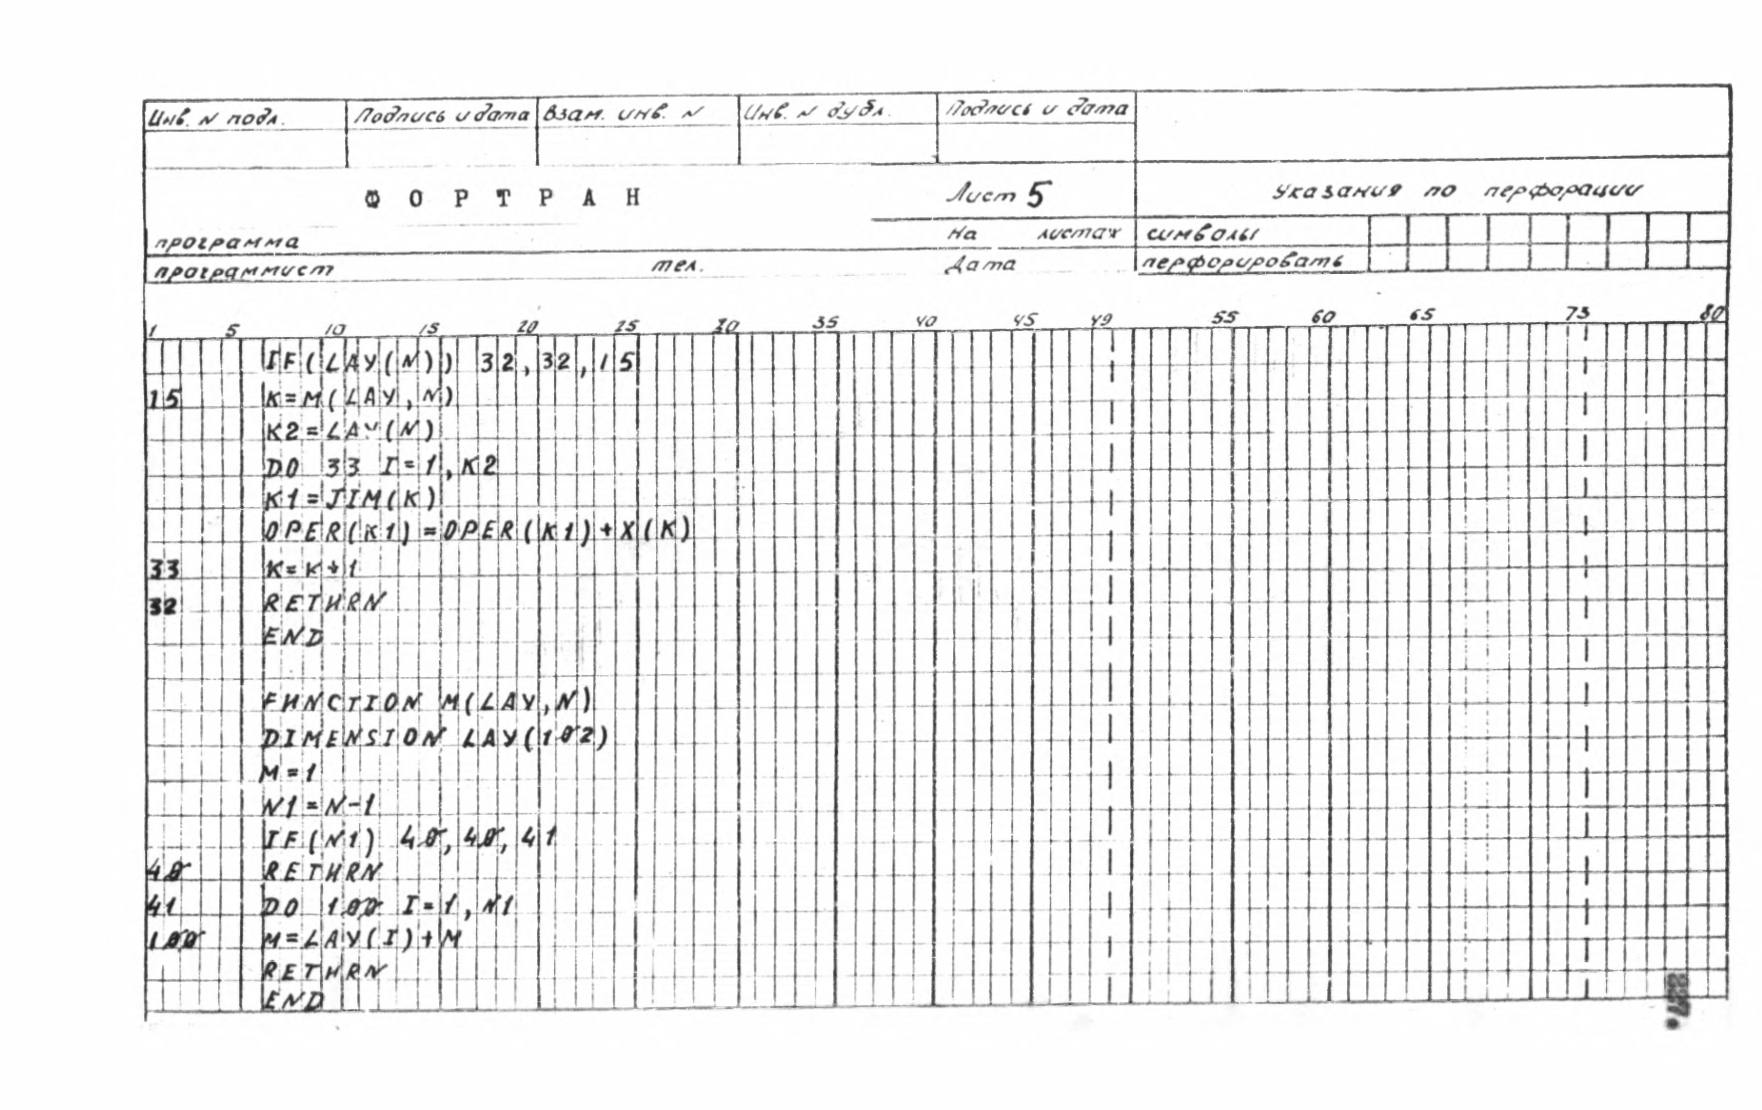 Инв. N подл. Подпись и дата Взам. инв. N Инв. N дубл. Подпись и дата
ФОРТРАН Лист 5 Указания по перфорации
программа на листах символы
программист тел. Дата перфорировать
1 5 10 15 20 25 30 35 40 45 49 55 60 65 73 80
IF(LAY(N)) 32,32,15
15 K=M(LAY,N)
K2=LAY(N)
DO 33 I=1,K2
K1=JIM(K)
OPER(K1)=OPER(K1)+X(K)
33 K=K+1
32 RETURN
END
FUNCTION M(LAY,N)
DIMENSION LAY(102)
M=1
N1=N-1
IF(N1) 40,40,41
40 RETURN
41 DO 100 I=1,N1
100 M=LAY(I)+M
RETURN
END